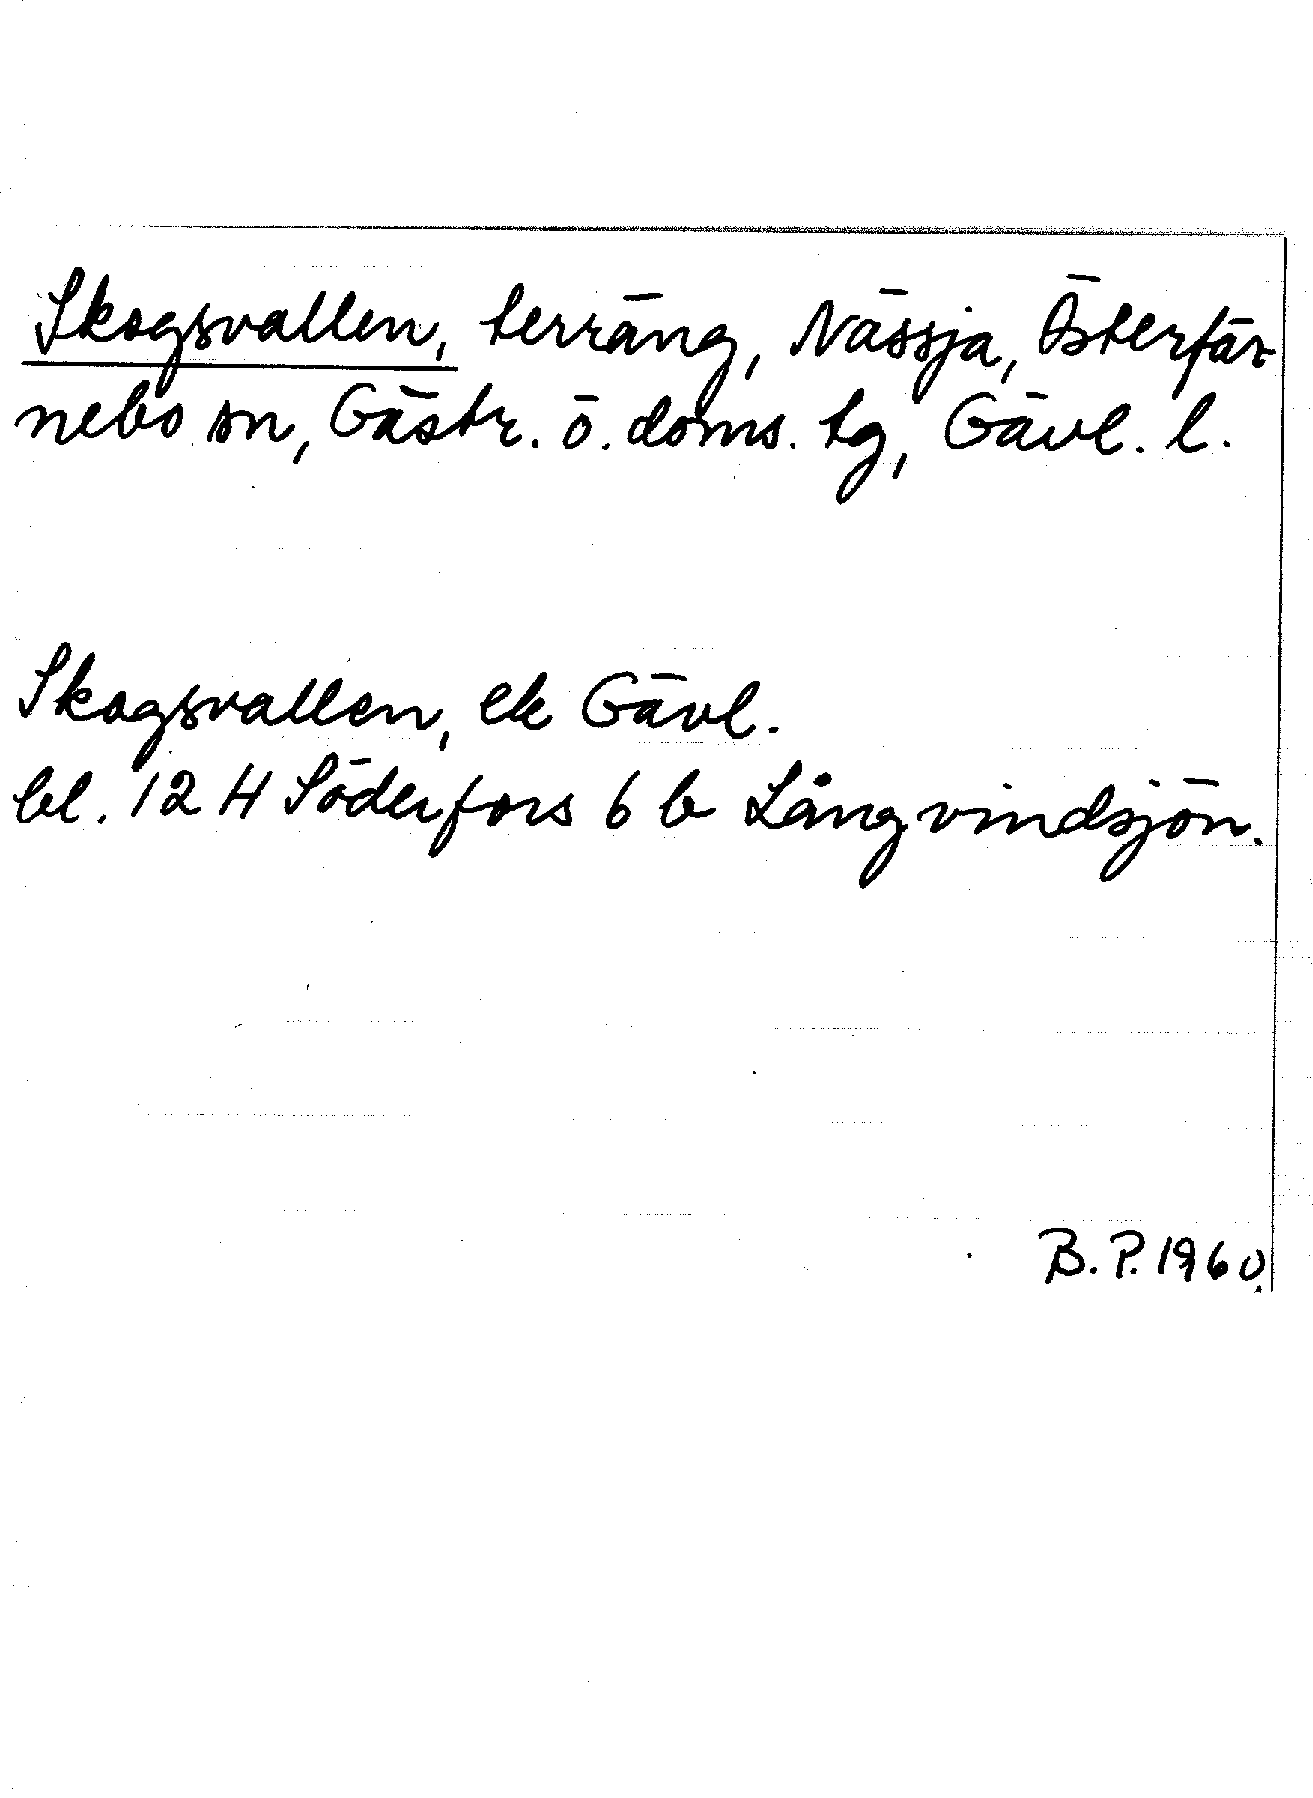 Skogsvallen, terräng, Nässja, Österfär-
nebo sn, Gästr. ö. doms. tg, Gävl. l.
Skogsvallen, ek Gävl.
bl. 12 H Söderfors 6 b Långvindsjön.
B. P. 1960.